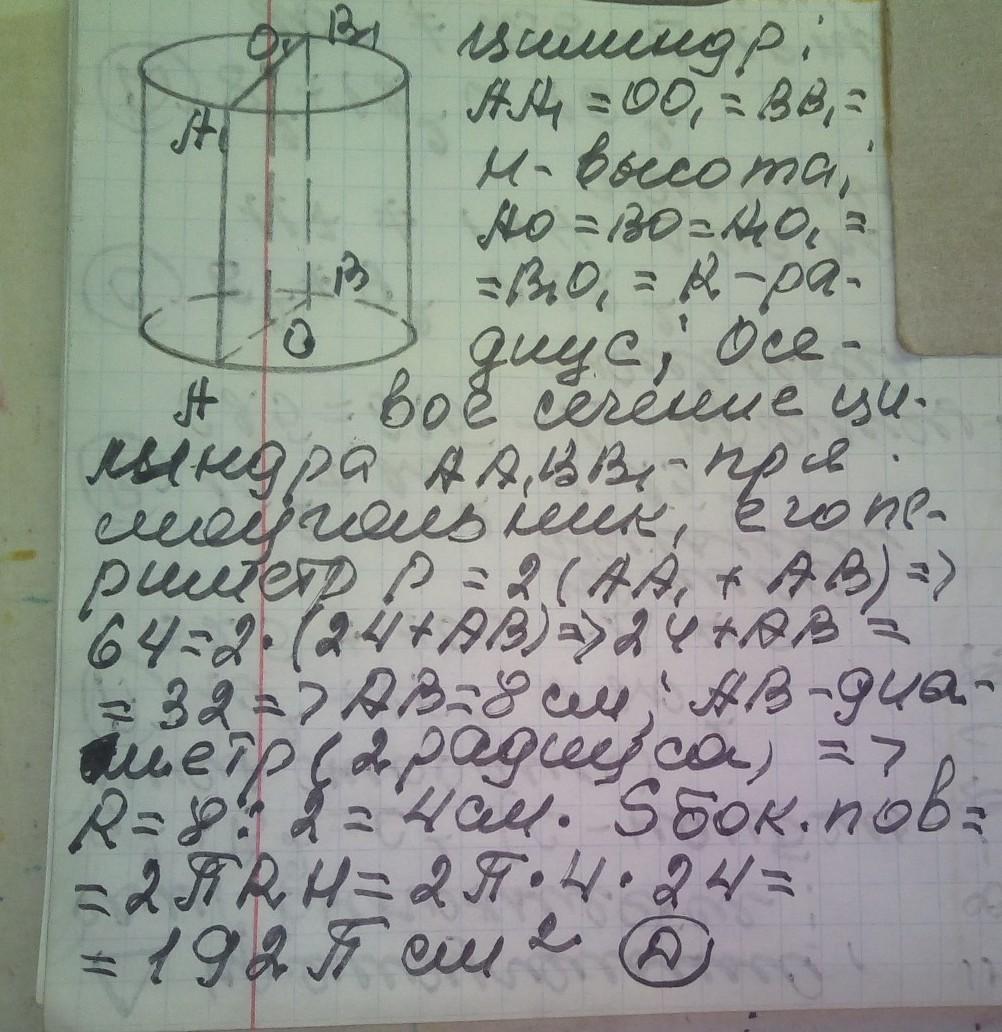 O₁ B₁
A₁
B
O
A
цилиндр:
AA₁ = OO₁ = BB₁ =
H - высота;
AO = BO = A₁O₁ =
= B₁O₁ = R - ра-
диус; Осе-
вое сечение ци-
лындра AA₁BB₁ - пря
моугольник, его пе-
риметр P = 2 (AA₁ + AB) =>
64 = 2 · (24 + AB) => 24 + AB =
= 32 => AB = 8 см; AB - диа-
метр (2 радиуса) =>
R = 8 : 2 = 4 см. Sбок. пов =
= 2ПRH = 2П · 4 · 24 =
= 192 П см² Д